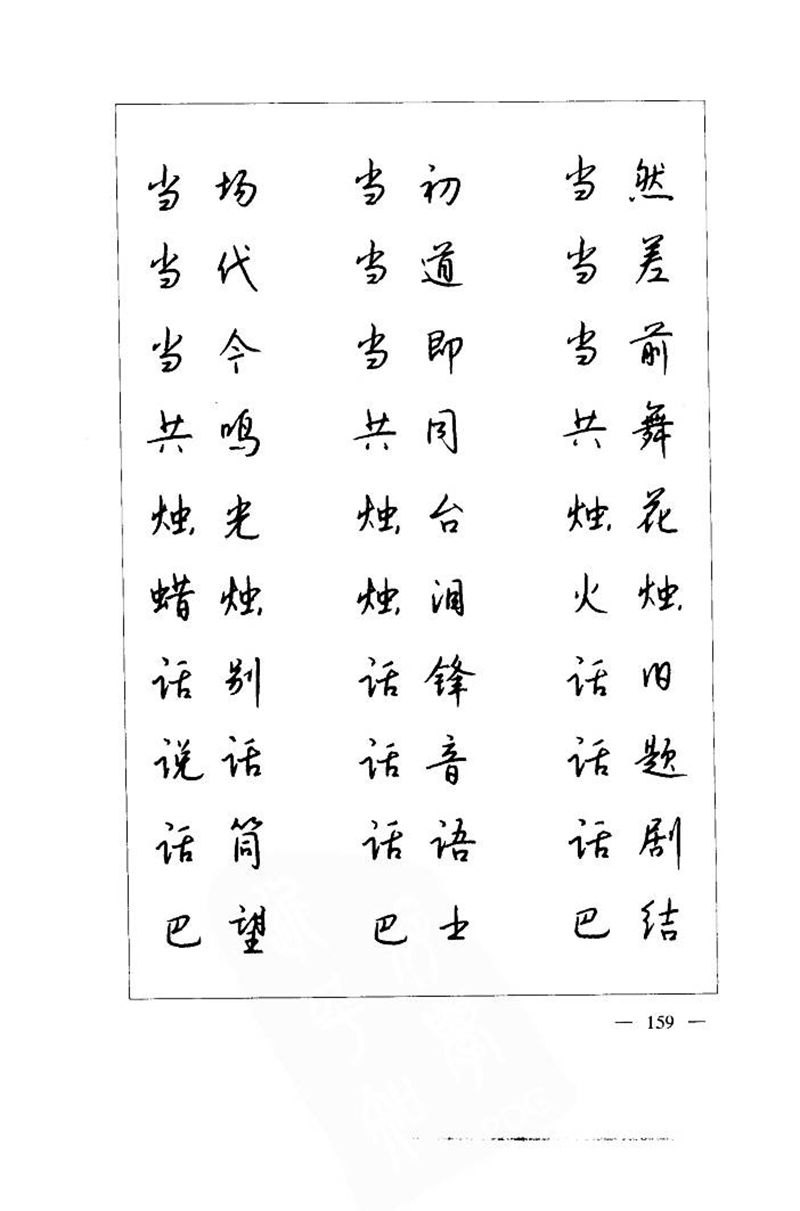 当场 当初 当然
当代 当道 当差
当今 当即 当前
共鸣 共同 共舞
烛光 烛台 烛花
蜡烛 烛泪 火烛
话别 话锋 话旧
说话 话音 话题
话筒 话语 话剧
巴望 巴士 巴结
— 159 —